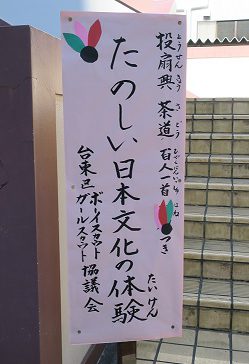 投扇興 茶道 百人一首 はねつき
とうせんきょう さどう ひゃくにんいっしゅ
たのしい日本文化の体験
たいけん
台東区 ボーイスカウト ガールスカウト 協議会